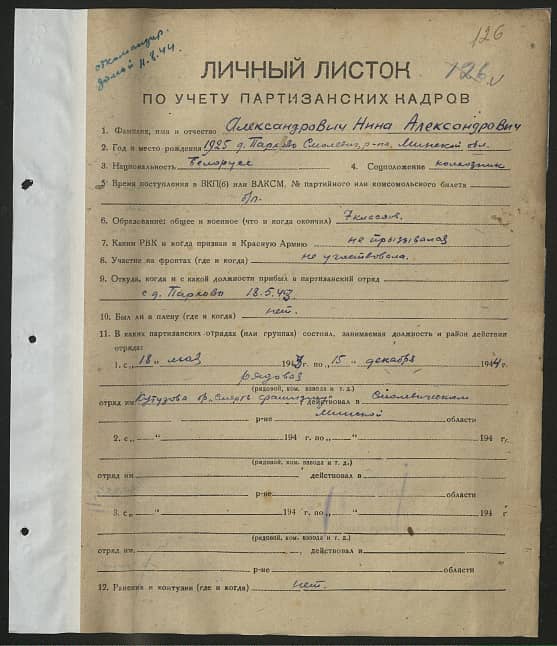 126
откомандир.
домой 11.8.44.
126
ЛИЧНЫЙ ЛИСТОК
ПО УЧЕТУ ПАРТИЗАНСКИХ КАДРОВ
1. Фамилия, имя и отчество Александрович Нина Александрович
2. Год и место рождения 1925 д. Парково Смолевич. р-на, Минской обл.
3. Национальность белорусс 4. Соцположение колхозник
5. Время поступления в ВКП(б) или ВЛКСМ, № партийного или комсомольского билета
б/п.
6. Образование: общее и военное (что и когда окончил) 7 классов.
7. Каким РВК и когда призван в Красную Армию не призывалась
8. Участие на фронтах (где и когда) не участвовала.
9. Откуда, когда и с какой должности прибыл в партизанский отряд
с д. Парково 18.5.43
10. Был ли в плену (где и когда) нет.
11. В каких партизанских отрядах (или группах) состоял, занимаемая должность и район действия
отряда:
1. с „18„ мая 1943 г. по „15„ декабря 1944 г.
рядовая
(рядовой, ком. взвода и т. д.)
отряд им Кутузова бр. „Смерть фашизму" действовал в Смолевическом
р-не Минской области
2. с „ “ 194 г. по „ “ 194 г.
(рядовой, ком. взвода и т. д.)
отряд им. действовал в
р-не области
3. с „ “ 194 г. по „ “ 194 г
(рядовой, ком. взвода и т. д.)
отряд им. , действовал в
р-не области
12. Ранения и контузии (где и когда) нет.